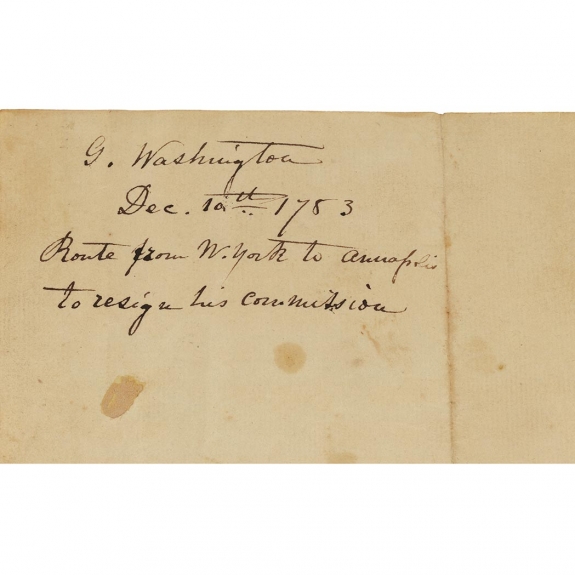 G. Washington
Dec. 10th 1783
Route from N. York to Annapolis
to resign his commission